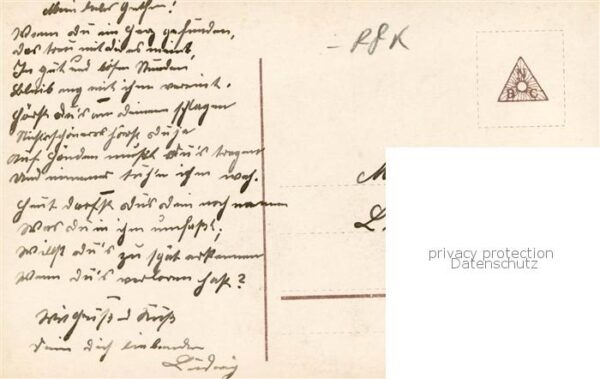 Mein liebes Gretken!
Wenn du ein Herz gefunden,
das treu mit dir es meint,
In gut und bösen Stunden
Bleib eng mit ihm vereint.
Hörst du's an deinem schlagen
Nichts schöneres hörst du je
Auf Händen mußt du's tragen
Und nimmer tu' ihm weh.
Heut darfst du's dein noch nennen
Was du in ihm umfaßt;
Willst du's zu spät erkennen
Wenn du's verloren hast?
Mit Gruß u Kuß
Dein dich liebender
Ludwig
RFK
N
B C
M
L.
privacy protection
Datenschutz